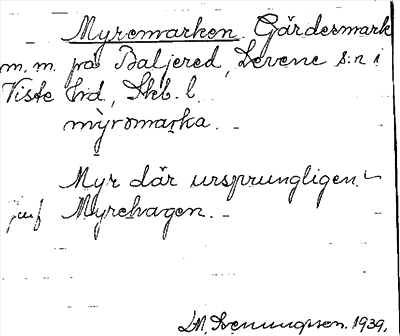 Myremarken. Gärdesmark
m.m. på Baljered, Levene s:n i
Viste hrd, Skb. l.
myromarka.
Myr där ursprungligen.
jmf Myrehagen.
LM. Svenungsson. 1939.